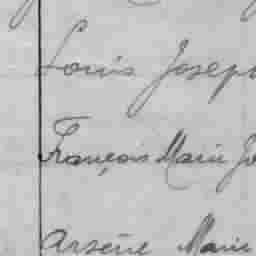 Louis Joseph
François Marie Jo
Arsène Marie